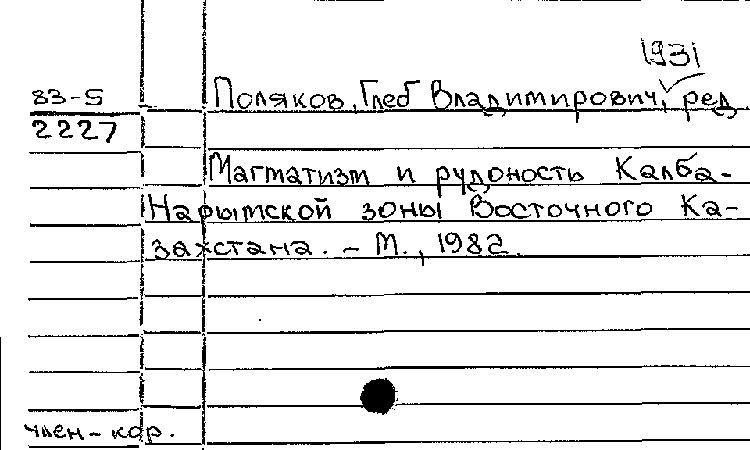 1931
83-5 Поляков, Глеб Владимирович, ред
2227
Магматизм и рудоность Калба-
Нарымской зоны Восточного Ка-
захстана. – М., 1982.
член-кор.